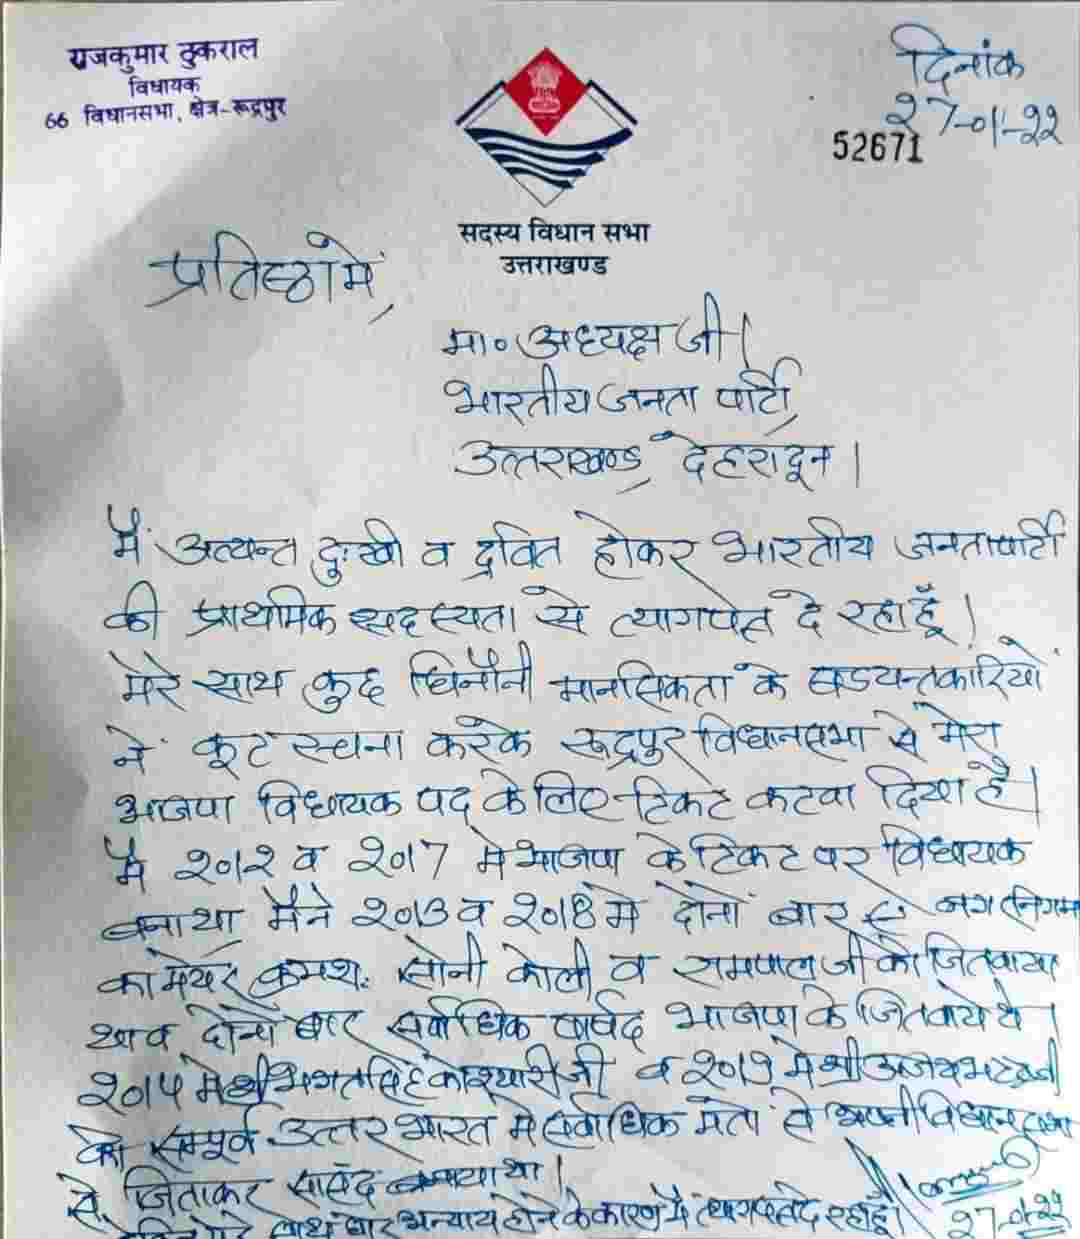 राजकुमार ठुकराल
विधायक
66 विधानसभा, क्षेत्र-रूद्रपुर
दिनांक
२7-01-२२
52671
सदस्य विधान सभा
उत्तराखण्ड
प्रतिष्ठा में,
मा० अध्यक्ष जी।
भारतीय जनता पार्टी,
उत्तराखण्ड, देहरादून।
मैं अत्यन्त दुःखी व द्रवित होकर भारतीय जनता पार्टी
की प्राथमिक सदस्यता से त्यागपत्र दे रहा हूँ।
मेरे साथ कुछ घिनौनी मानसिकता के षडयन्तकारियों
ने कूट रचना करके रूद्रपुर विधानसभा से मेरा
भाजपा विधायक पद के लिए टिकट कटवा दिया है।
मैं २०1२ व २०17 मे भाजपा के टिकट पर विधायक
बना था मैने २०13 व २०18 मे दोनों बार से नगर निगम
का मेयर क्रमशः सोनी कोली व रामपाल जी को जितवाया
था व दोनो बार सर्वाधिक पार्षद भाजपा के जितवाये थे।
२०1५ मे श्री भगत सिंह कोश्यारी जी व २०1९ मे श्री अजय भट्ट जी
को सम्पूर्ण उत्तर भारत मे सर्वाधिक मतो से अपनी विधान सभा
से जिताकर सांसद बनाया था।
मेरे साथ बार अन्याय होने के कारण मैं त्यागपत्र दे रहा हूँ।
२7-01-२२